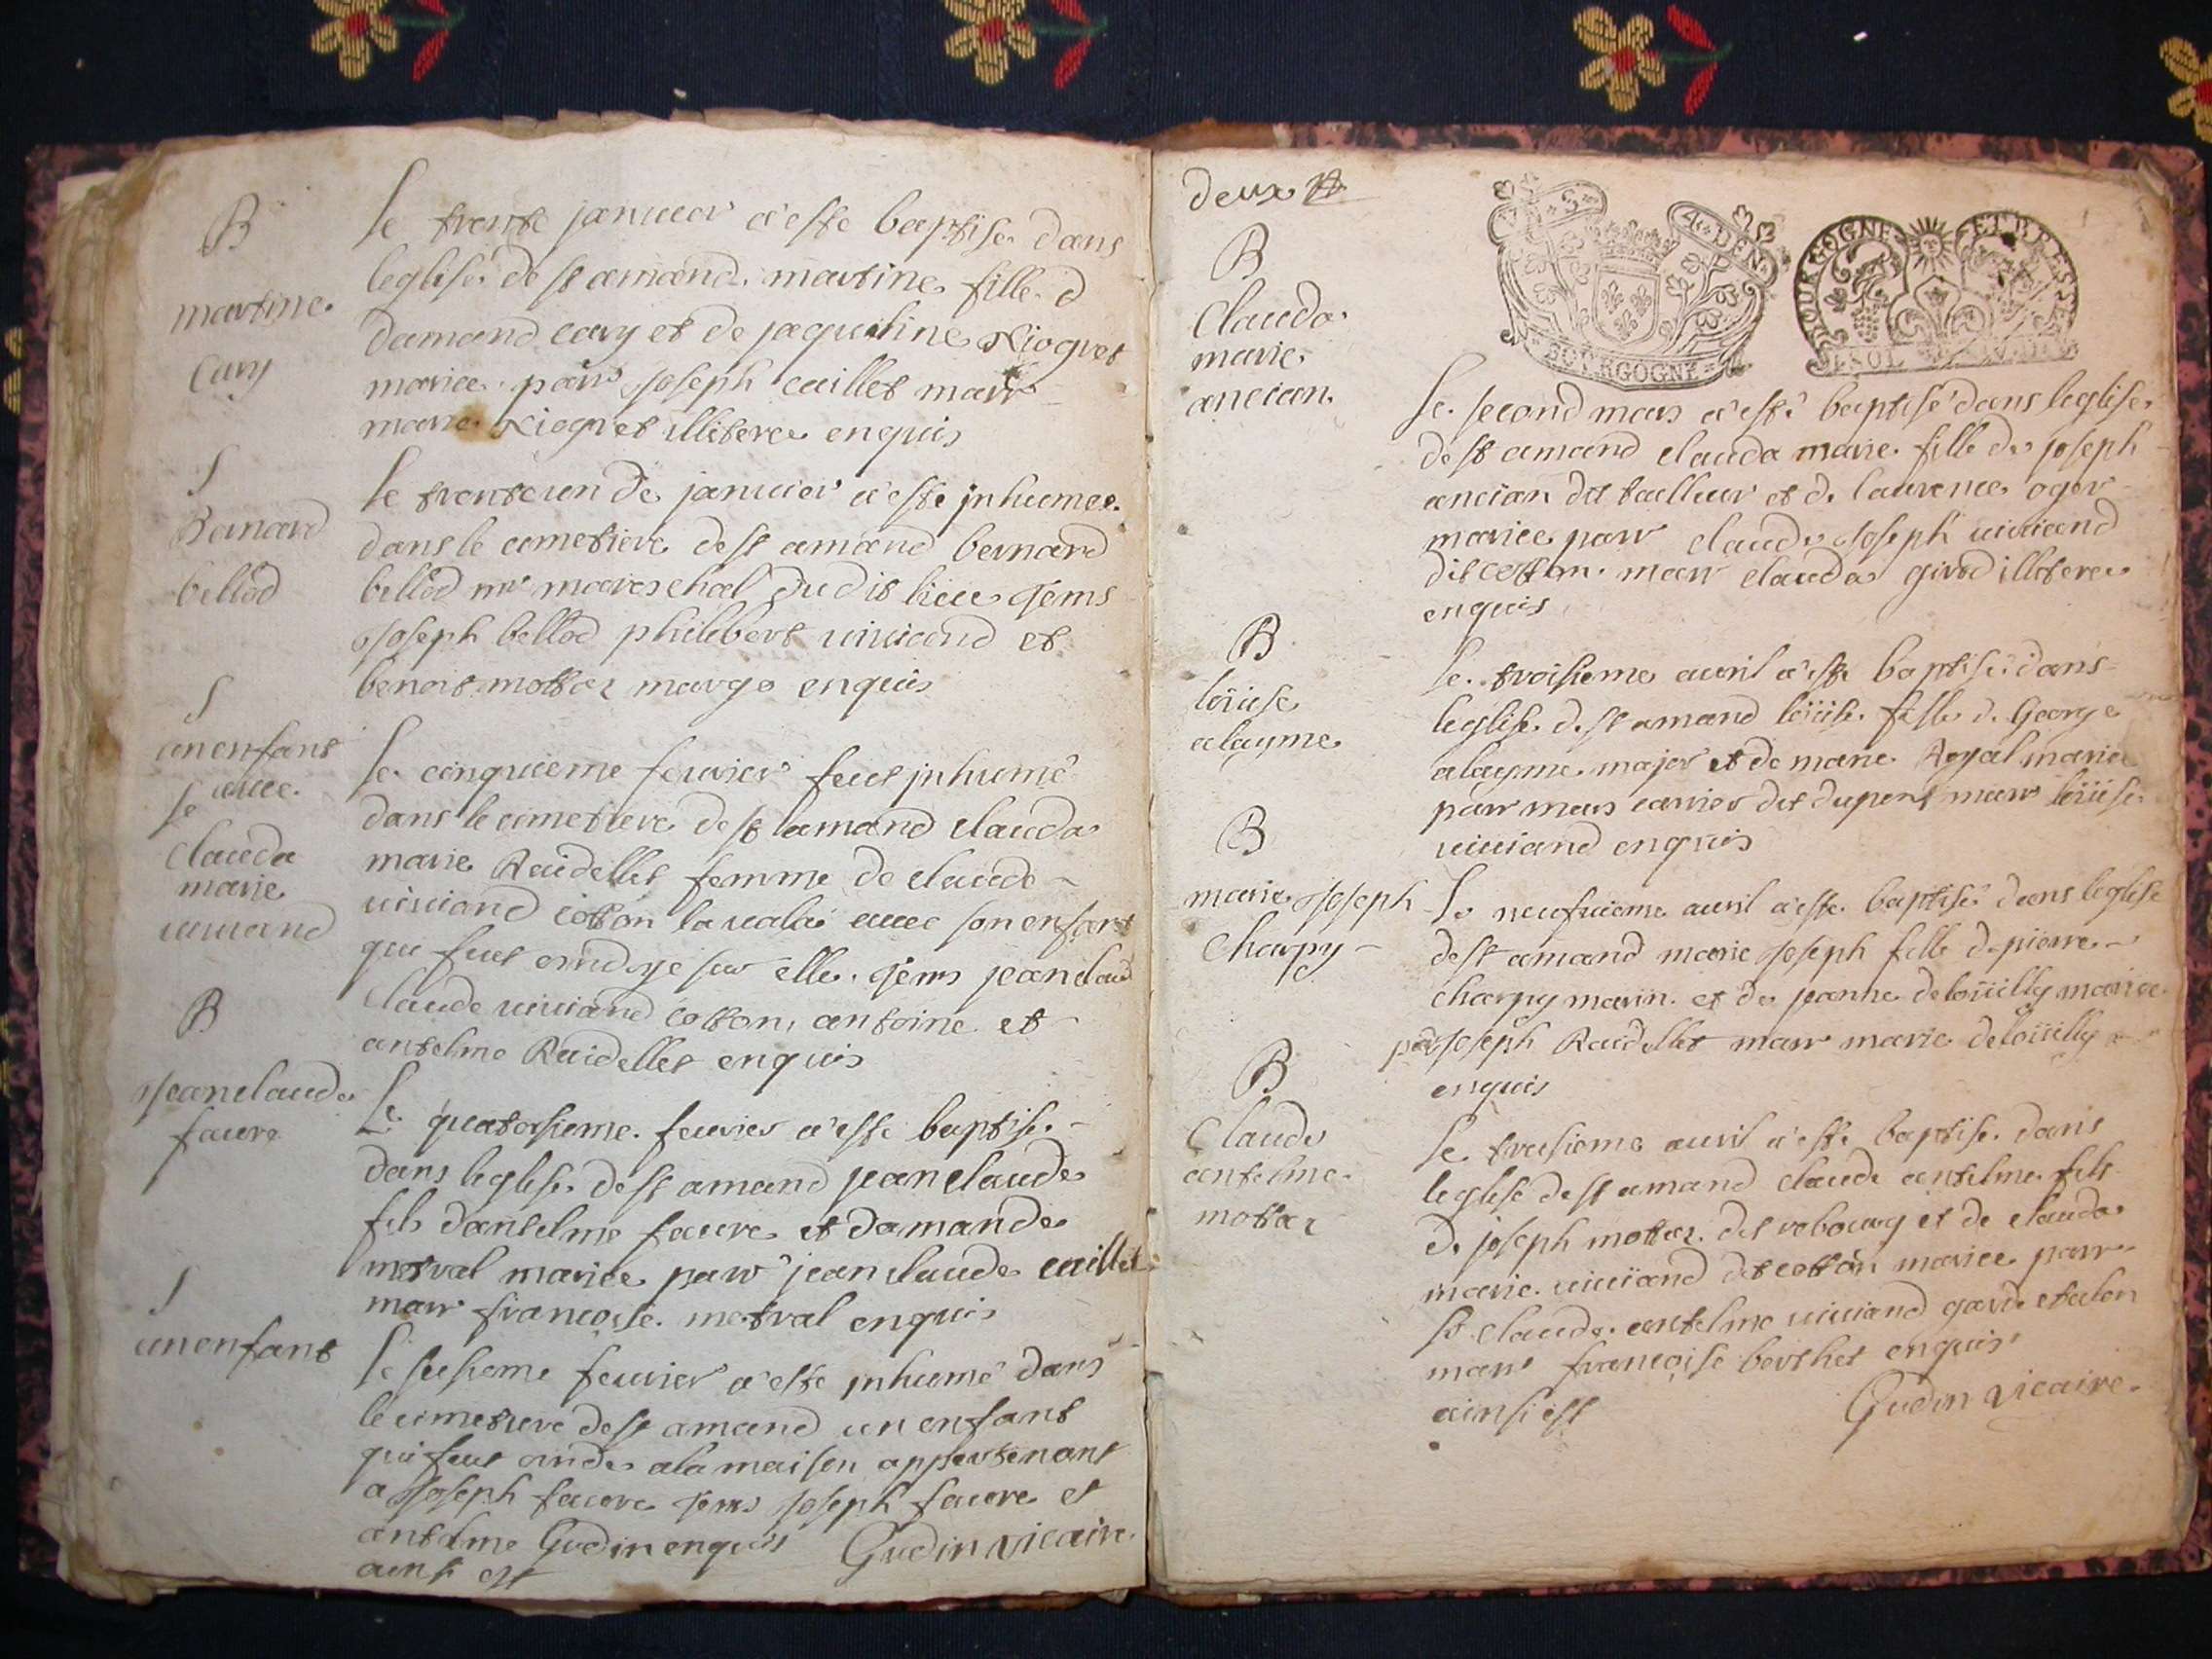 B
martine
Cury
le trente januier a esté baptisé dans
leglise de st amand martine fille d
damand cury et de jaqueline Riognet
mariee parr joseph caillet marr
marie Riognet illiteree enquis
S
Bernard
bellod
le trente un de januier a esté jnhumee
dans le cimetiere de st amand bernard
bellod mre mareschal dudit lieu tems
joseph bellod philibert uiuiand et
benoit mottaz margo enquis
S
un enfant
auec
se
Clauda
marie
uiuiand
le cinquieme feurier feut jnhumé
dans le cimetiere de st amand clauda
marie Raidellet femme de claude
uiuiand cotton la uala auec son enfant
qui feut ondoye sur elle tems jean claud
claude uiuiand cotton, antoine et
antelme Raidellet enquis
B
jean claude
faure
Le quatorsieme feurier a esté baptisé
dans leglise de st amand jean claude
fils dantelme faure et damande
metral mariee parr jean claude caillet
marr francoise metral enquis
S
un enfant
le sesieme feurier a esté jnhumé dans
le cimetiere de st amand un enfant
qui feut ondé a la maison appertenant
a joseph faure tems joseph faure et
antelme Gudin enquis Gudin vicaire
ainsi est
deux
5 4 DEN
BOURGOGNE
BOURGOGNE ET BRESSE
B
Clauda
marie
ancian
le second mars a esté baptisé dans leglise
de st amand clauda marie fille de joseph
ancian dit tailleur et de laurence oger
mariee parr claude joseph uiuiand
dit cotton marr clauda girod illiteree
enquis
B
loüise
alayme
le troisieme auril a esté baptisé dans
leglise de st amand loüise fille de George
alayme major et de marie Royal mariee
parr mars carrier dit dupent marr loüise
uiuiand enquis
B
marie joseph
Charpy
Le neufuieme auril a esté baptisé dans leglise
de st amand marie joseph fille de pierre
charpy marin et de jeanne deloüilly mariee
par joseph Raidellet marr marie deloüilly
enquis
B
Claude
antelme
mottaz
le tresieme auril a esté baptisé dans
leglise de st amand claude antelme fils
de joseph mottaz dit rebourg et de clauda
marie uiuiand dit cotton mariee parr
sr claude antelme uiuiand garde etalon
marr francoise berthet enquis
ainsi est Gudin vicaire